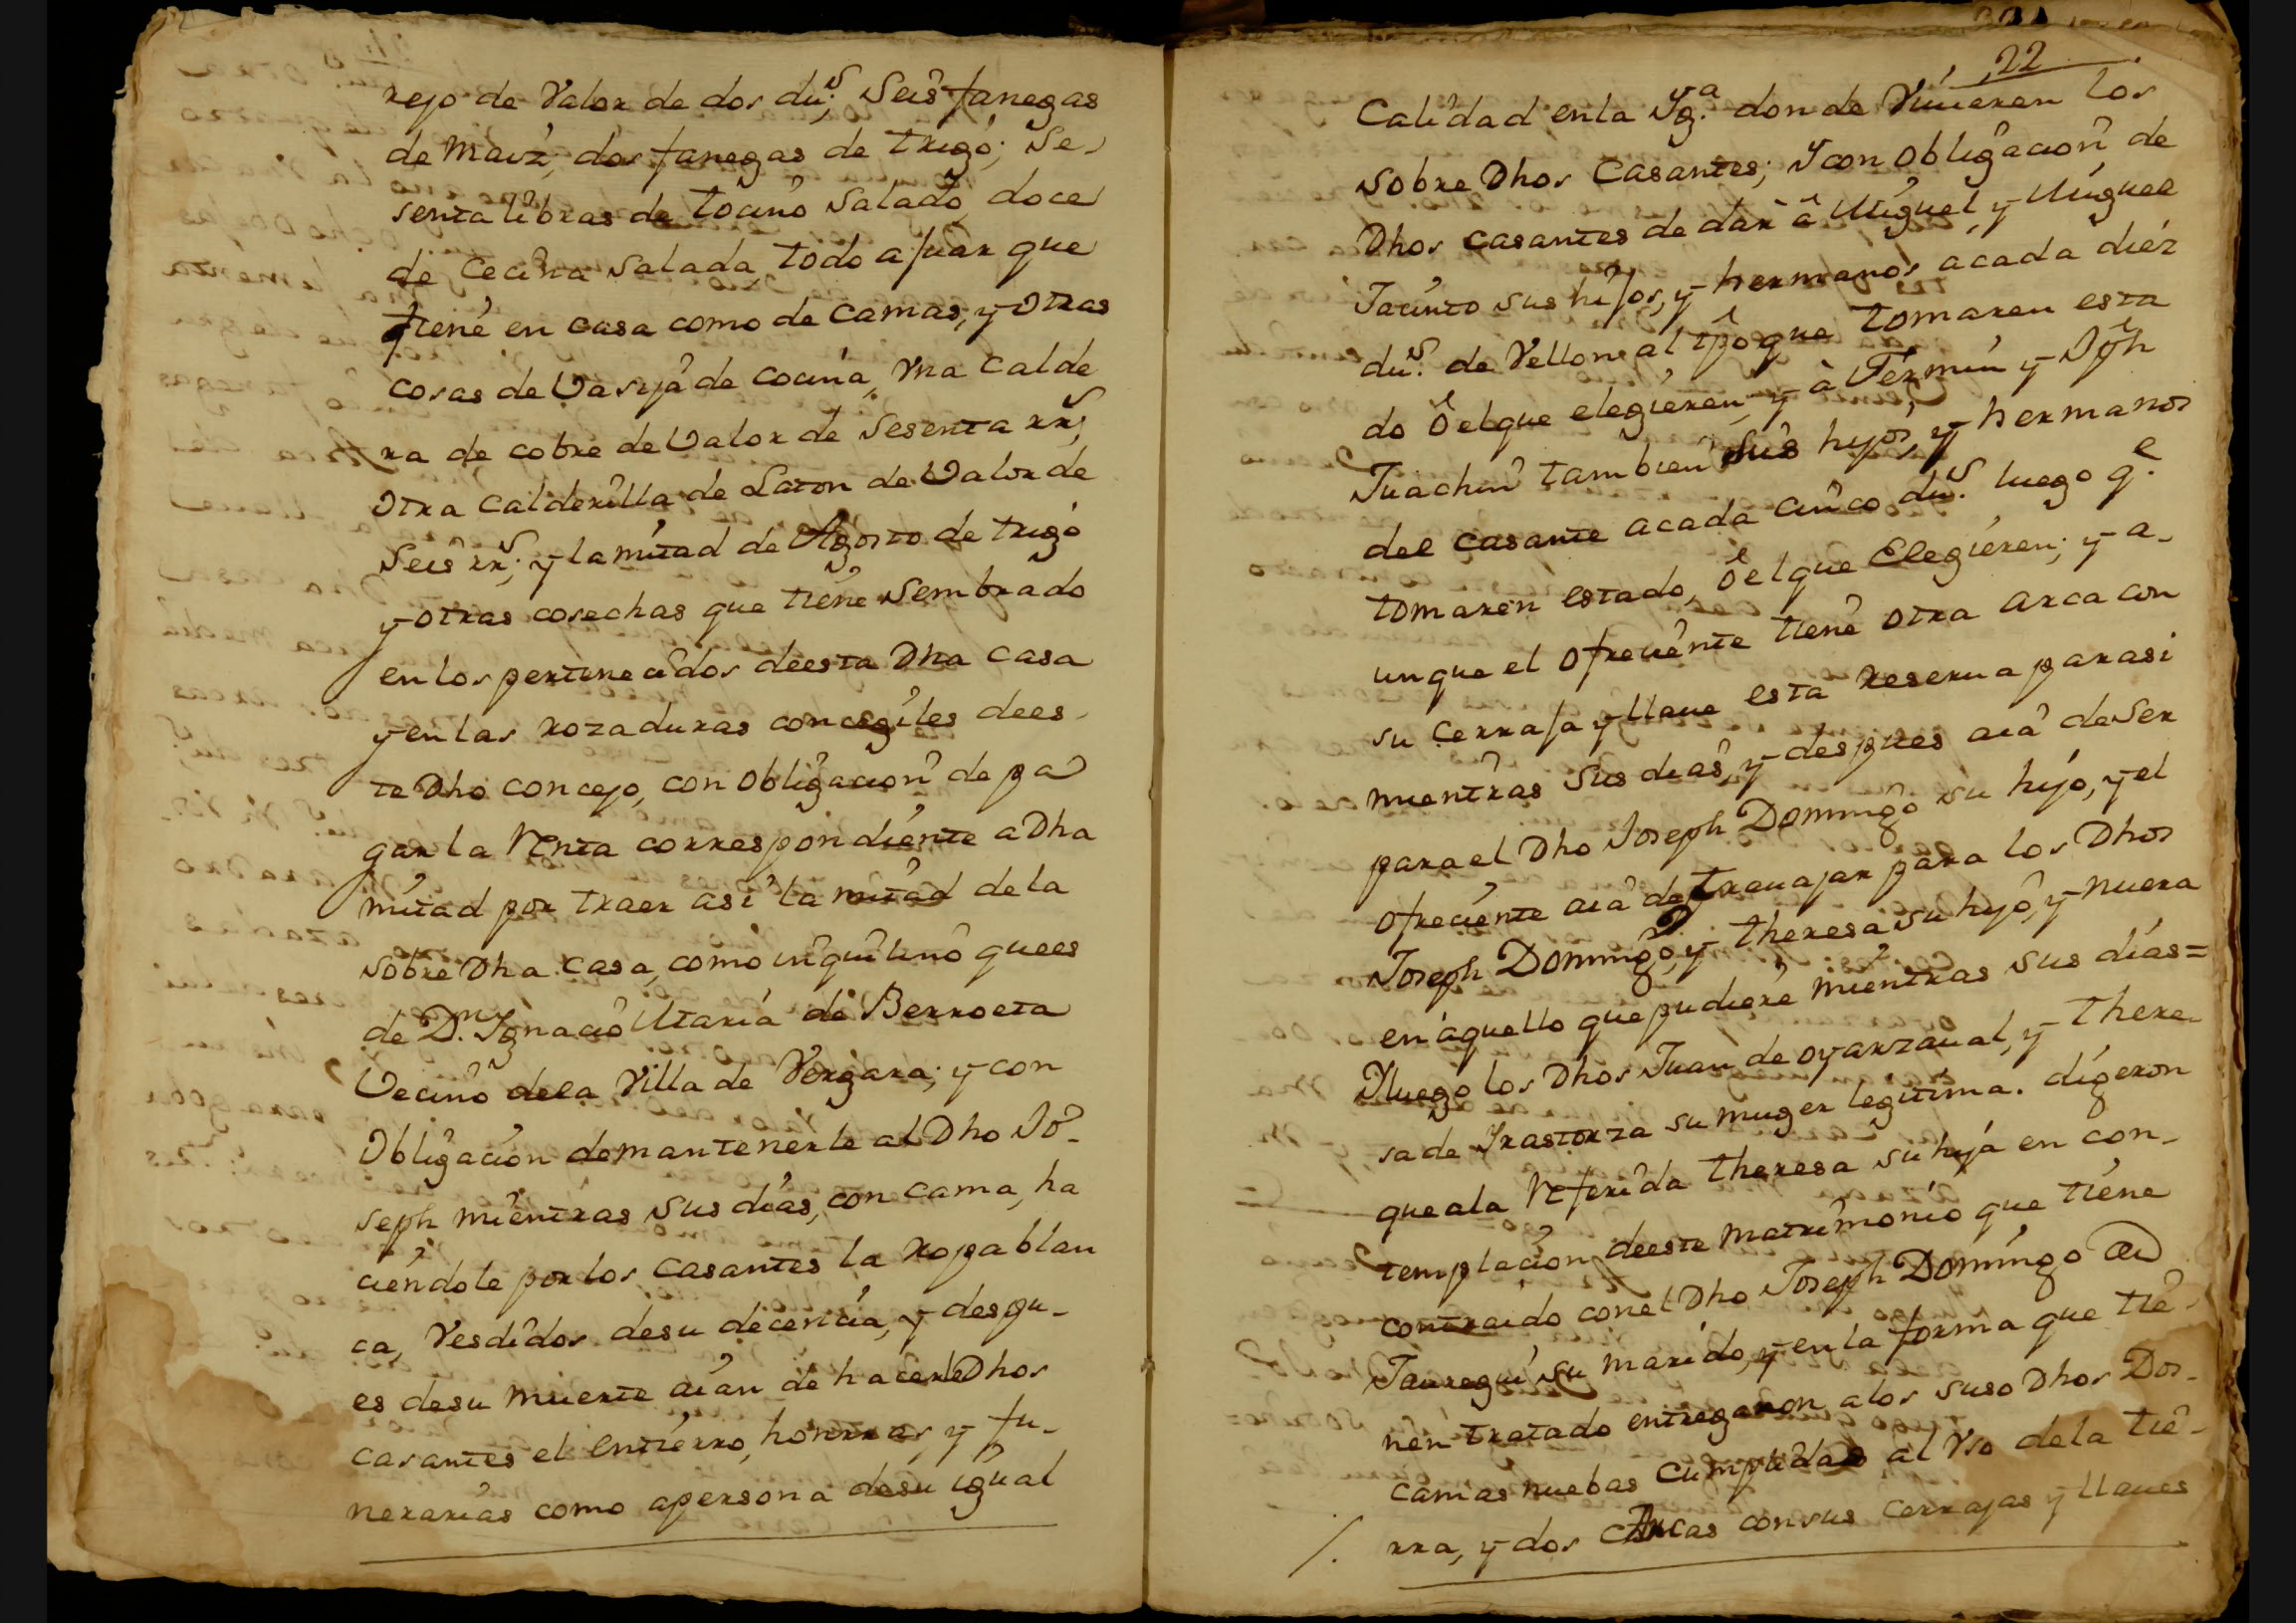 rejo de Valor de dos du.s, Seis fanegas
de maiz, dos fanegas de trigo; Se-
senta libras de tocino Salado, doce
de Cecina Salada, todo ajuar que
tiene en casa como de camas, y otras
cosas de Vasija de cocina, Una Calde
ra de cobre de Valor de Sesenta rr.s,
otra Calderilla de Laton de Valor de
Seis rr.s; y la mitad de Agosto de trigo
y otras cosechas que tiene Sembrado
en los pertenecidos deesta Dha Casa
y en las rozaduras concegiles dees-
te Dho concejo, con obligacion de pa
gar la Renta correspondiente a Dha
mitad por traer asi la mitad de la
sobre Dha Casa, como inquilino que es
de D.n Ignacio Maria de Berroeta
Vecino dela Villa de Vergara; y con
Obligacion demantenerle al Dho Jo-
seph mientras Sus dias, con cama, ha
ciendole por los Casantes la ropa blan
ca, Vesdidos desu decencia, y despu-
es desu muerte aian de hacerle Dhos
casantes el entierro, honrras, y fu-
nerarias como apersona desu igual
22
Calidad en la Yg.a don de Vivieren los
sobre Dhos Casantes; Y con obligacion de
Dhos casantes de dar â Miguel, y Miguel
Jacinto sus hijos, y hermanos acada diez
du.s de Vellon al tpo que tomaren esta
do ô el que elegieren, y â Fermin y Jph
Juachin tambien sus hijos, y hermanos
del casante acada cinco du.s luego q.e
tomaren estado, ô el que Elegieren; y a-
unque el ofreciente tiene otra arca con
su Cerraja y llave esta reserva parasi
mientras Sus dias, y despues aiâ deSer
para el Dho Joseph Domingo su hijo, y el
ofreciente aiâ de travajar para los Dhos
Joseph Domingo, y theresa su hijo, y nuera
en aquello que pudiere mientras sus dias =
Y luego los Dhos Juan de oyarzaual, y there-
sa de Yrastorza su muger legitima. digeron
que ala Referida theresa su hija en con-
templacion deeste matrimonio que tiene
contraido conel Dho Joseph Domingo de
Jauregui su marido, y en la forma que tie-
nen tratado entregaron alos suso Dhos Dos
camas nuebas Cumplidas al Vso dela tie-
rra, y dos Arcas consus Cerrajas y llaves